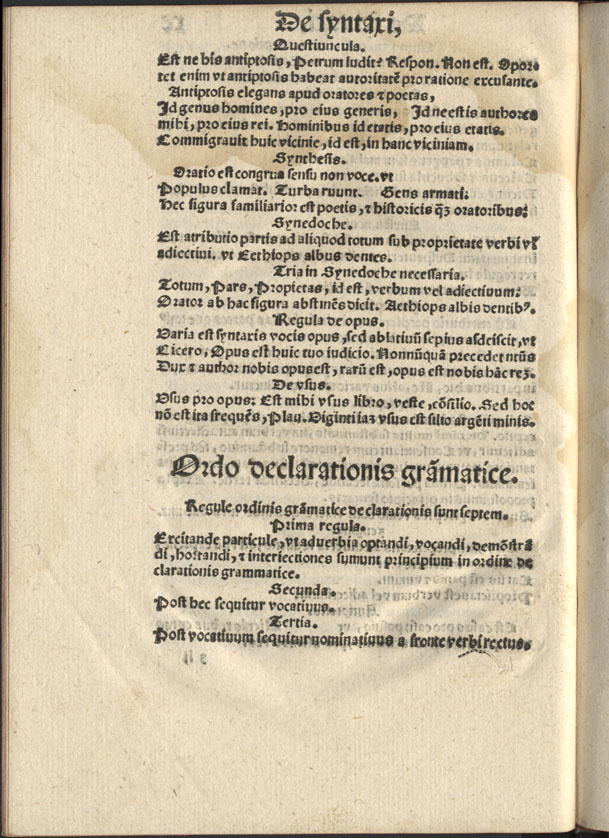 De syntaxi,
Questiuncula.
Est ne his antiptosis, Petrum ludit? Respon. Non est. Opor⸗
tet enim vt antiptosis habeat autoritatē pro ratione excusante.
Antiptosis elegans apud oratores ⁊ poetas,
Id genus homines, pro eius generis, Id ne estis authores
mihi, pro eius rei. Hominibus id etatis, pro eius etatis.
Commigrauit huic vicinie, id est, in hanc viciniam.
Synthesis.
Oratio est congrua sensu non voce. vt
Populus clamat. Turba ruunt. Gens armati.
Hec figura familiarior est poetis, ⁊ historicis qȝ oratoribus.
Synedoche.
Est atributio partis ad aliquod totum sub proprietate verbi vl̄
adiectiui. vt Eethiops albus dentes.
Tria in Synedoche necessaria.
Totum, Pars, Propietas, id est, verbum vel adiectiuum.
Orator ab hac figura abstinēs dicit. Aethiops albis dentibꝰ.
Regula de opus.
Uaria est syntaxis vocis opus, sed ablatiuū sepius asdciscit, vt
Cicero, Opus est huic tuo iudicio. Nonnūquā precedet ntūs
Dux ⁊ author nobis opus est, rarū est, opus est nobis hāc reȝ.
De vsus.
Usus pro opus: Est mihi vsus libro, veste, cōsilio. Sed hoc
nō est ita frequēs, Plau. Uiginti iaȝ vsus est filio argēti minis.
Ordo declarationis grāmatice.
Regule ordinis grāmatice de clarationis sunt septem.
Prima regula.
Excitande particule, vt aduerbia optandi, vocandi, demōstrā
di, hortandi, ⁊ interiectiones sumunt principium in ordine de
clarationis grammatice.
Secunda.
Post hec sequitur vocatiuus.
Tertia.
Post vocatiuum sequitur nominatiuus a fronte verbi rectus.